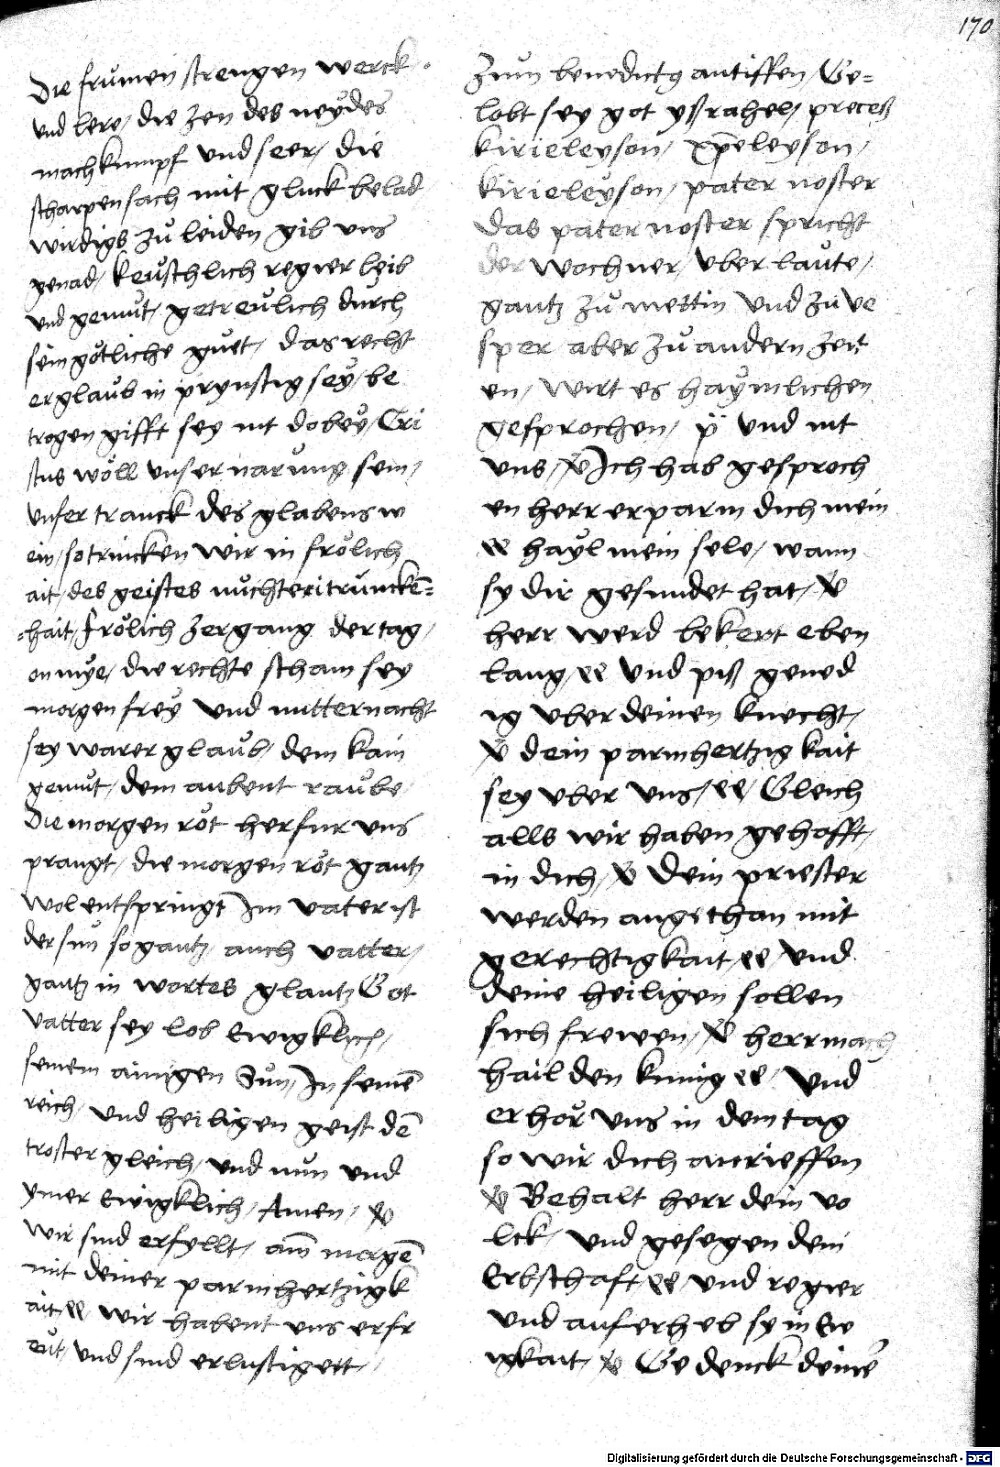 170
Die frumen strengen werck
und lere / die zen des neydes
mach kumpf und seer / die
scharpen sach mit gluck belad
wirdigs zů leiden gib uns
genad / keůschlich regier leib
und gemůt / getreůlich dúrch
sein götliche gůet / das recht
er glaůb in prynstig seÿ / be
trogen gifft sey nit dobeÿ / Cri
stus wöll unser narung sein /
unser tranck des glabens w
ein / so trincken wir in frölich
ait / des geistes nůchteri trúncke᷑=
=hait / frölich zergang der tag /
on mÿe / die rechte scham sey
morgen freÿ und mitternacht
sey warer glaůb / dem kain
gemůt / dem aubent raůbe
Die morgen röt herfur uns
prangt / die morgen röt gantz
wol entspringt Im vater ist
der sun so gantz / auch vatter /
gantz in wortes glantz Got
vatter sey lob Ewigklich /
seinem ainigen Sun / In seine᷑
reich / und heiligen geist de᷑
troster gleich / und nun und
ymer Ewigklich / Amen / ꝟ
wir sind erfyllt / am morge᷑
mit deiner parmhertzigk
ait / ꝶ wir habent uns erfr
eůt / und sind erlustigett /
Zum benedictꝯ antiffen / Ge=
lobt sey got ysrahel / preceß
kirieleyson / xpeleyson /
kirieleyson / pater noster
das pater noster spricht
der wochner / uber laute /
gantz zů mettin und zu ve
sper aber zů andern zeit
en / wirt es haÿmlichen
gesprochen / p̈ und nit
uns / ꝟ Ich hab gesproch
en herr erparm dich mein
ꝶ haÿl mein sele / wann
sy dir gesundet hat / ꝟ
herr werd bekert eben
lang / ꝶ und piß gened
ig uber deinen knecht /
ꝟ dein parmhertzig kait
sey uber uns / ꝶ / Gleich
alls wir haben gehofft /
in dich / ꝟ Dein priester
werden angethan mit
gerechtigkait / ꝶ und
deine heiligen sollen
sich frewen / ꝟ herr mach
hail den kunig ꝶ / und
erhör uns in dem tag
so wir dich anrieffen
ꝟ Behalt herr dein vo
lck / und gesegen dein
Erbschafft ꝶ und regier
und auferheb sy in Ew
igkait / ꝟ Gedenck deine᷑
Digitalisierung gefördert durch die Deutsche Forschungsgemeinschaft - DFG